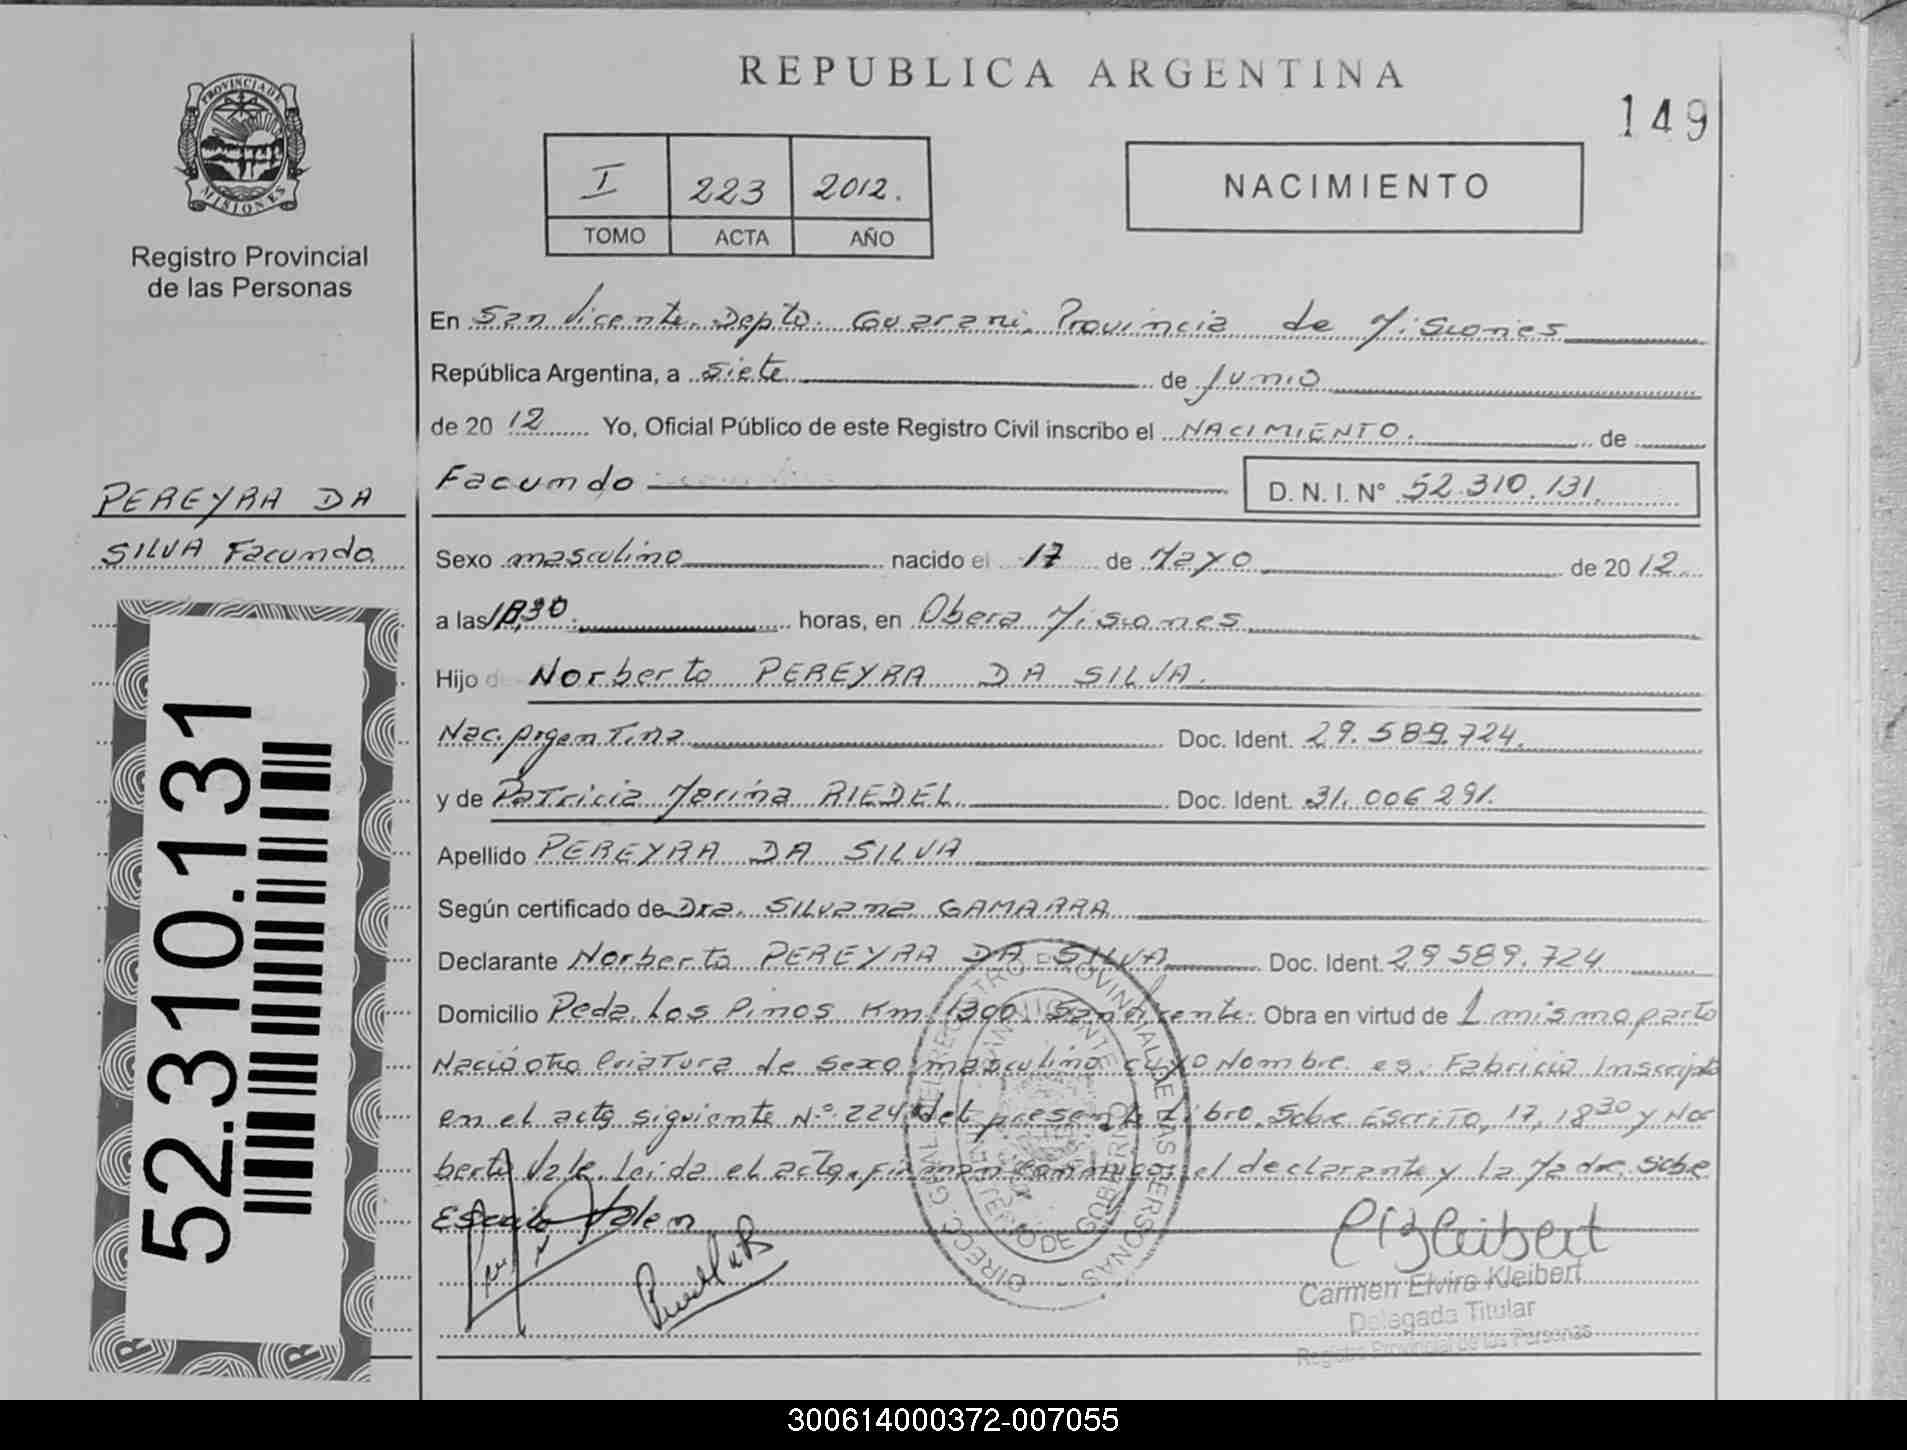 REPUBLICA ARGENTINA
149
PROVINCIA DE
MISIONES
Registro Provincial
de las Personas
I 223 2012.
TOMO ACTA AÑO
NACIMIENTO
En San Vicente. Depto. Guarani, Provincia de Misiones
República Argentina, a siete de Junio
de 20 12 Yo, Oficial Público de este Registro Civil inscribo el NACIMIENTO. de
Facundo D. N. I. N° 52.310.131.
PEREYRA DA
SILVA Facundo.
Sexo masculino nacido el 17 de Mayo de 20 12.
a las 18,30. horas, en Obera Misiones
Hijo de Norberto PEREYRA DA SILVA.
Nac. Argentina Doc. Ident. 29.589.724.
y de Patricia Marina RIEDEL. Doc. Ident. 31.006 291.
Apellido PEREYRA DA SILVA
Según certificado de Dra. SILvana GAMARRA
Declarante Norberto PEREYRA DA SILVA Doc. Ident. 29 589.724
Domicilio Pcda. Los Pinos Km. 1300. San Vicente. Obra en virtud de 1 mismo parto
Nacio otro criatura de sexo masculino cuyo Nombre es. Fabricio Inscripto
en el acta siguiente N° 224 del presente Libro. Sobre Escrito, 17, 18 30 y Nor
berto Vale. Leida el acta. Firman conmigo el declarante y La Madre. sobre
Escrito Valen
52.310.131
DIRECC. GRAL. DEL REGISTRO PROVINCIAL DE LAS PERSONAS
SAN VICENTE
MINISTERIO DE GOBIERNO
CEKleibert
Carmen Elvira Kleibert
Delegada Titular
Registro Provincial de las Personas
300614000372-007055